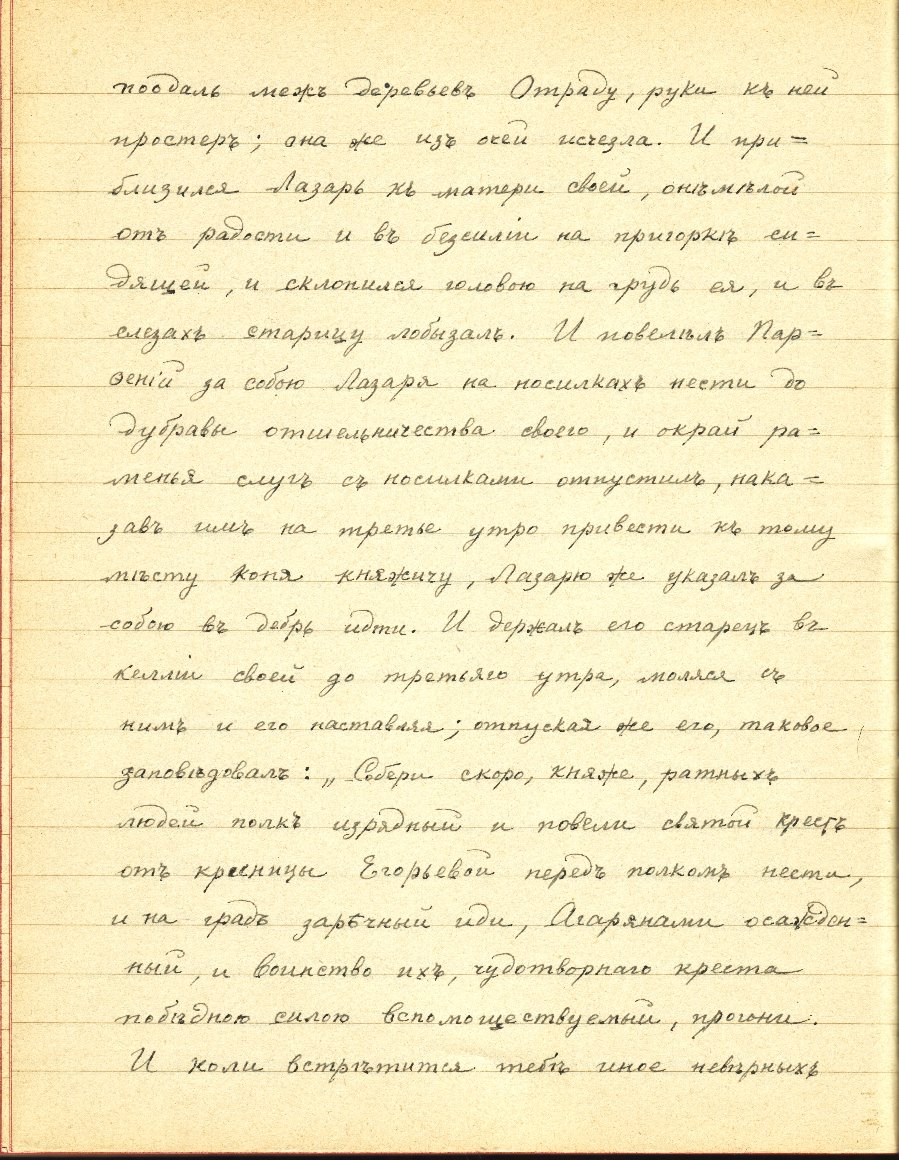 поодаль межъ деревьевъ Отраду, руки къ ней
простеръ; она же изъ очей исчезла. И при=
близился Лазарь къ матери своей, онѣмѣлой
отъ радости и въ безсиліи на пригоркѣ си=
дящей, и склонился головою на грудь ея, и въ
слезахъ старицу лобызалъ. И повелѣлъ Пар=
ѳеній за собою Лазаря на носилкахъ нести до
дубравы отшельничества своего, и окрай ра=
менья слугъ съ носилками отпустилъ, нака=
завъ имъ на третье утро привести къ тому
мѣсту коня княжичу, Лазарю же указалъ за
собою въ дебрь идти. И держалъ его старецъ въ
келліи своей до третьяго утра, моляся съ
нимъ и его наставляя; отпуская же его, таковое
заповѣдовалъ: „Собери скоро, княже, ратныхъ
людей полкъ изрядный и повели святой крестъ
отъ криницы Егорьевой передъ полкомъ нести,
и на градъ зарѣчный иди, Агарянами осажден=
ный, и воинство ихъ, чудотворнаго креста
побѣдною силою вспомоществуемый, прогони.
И коли встрѣтится тебѣ иное невѣрныхъ